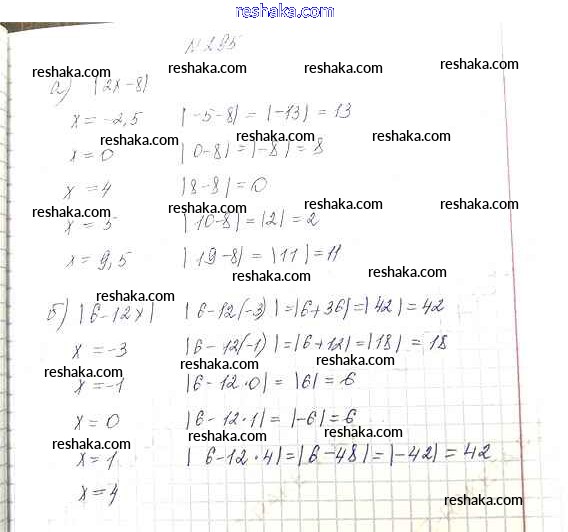 reshaka.com
№295
reshaka.com reshaka.com reshaka.com reshaka.com
а) |2x-8|
x = -2,5 |-5-8| = |-13| = 13
reshaka.com reshaka.com reshaka.com
x = 0 |0-8| = |-8| = 8
reshaka.com reshaka.com reshaka.com
x = 4 |8-8| = 0
reshaka.com reshaka.com reshaka.com reshaka.com
x = 5 |10-8| = |2| = 2
reshaka.com reshaka.com reshaka.com
x = 9,5 |19-8| = |11| = 11
reshaka.com reshaka.com
reshaka.com reshaka.com reshaka.com
б) |6-12x| |6-12(-3)| = |6+36| = |42| = 42
reshaka.com reshaka.com
x = -3 |6-12(-1)| = |6+12| = |18| = 18
reshaka.com reshaka.com reshaka.com
x = -1 |6-12·0| = |6| = 6
x = 0 |6-12·1| = |-6| = 6
reshaka.com reshaka.com reshaka.com
x = 1 |6-12·4| = |6-48| = |-42| = 42
x = 4
reshaka.com